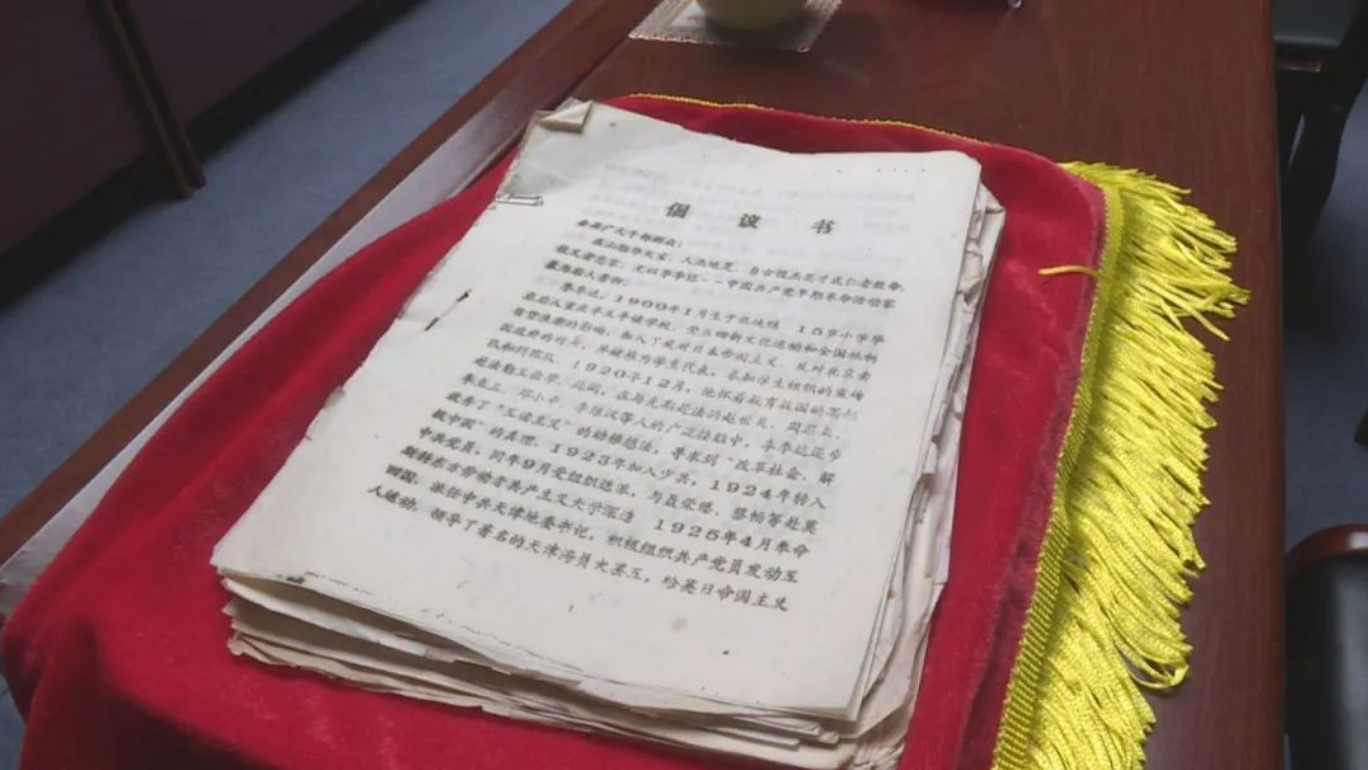 倡议书
全县广大干部群众:
巫山物华天宝、人杰地灵,自古俊杰英才成仁者敢命、
取义者忘家,尤以李季达--中国共产党早期革命活动家
最为给人骨仰:
李季达,1900年1月生于巫峡镇 15岁小学毕
业后入重庆半工半读学校,受五四新文化运动和全国抵制
日货浪潮的影响,加入了反对日本帝国主义、反对北京卖
国政府的行斗,并被推为学生代表,参加学生组织的宣传
队和纠察队 1920年12月,他怀着教育救国的思想
赴法勤工俭学、此间,在与先期赴法的赵世炎、周恩来、
李立三、邓小平、李维汉等人的广泛接触中,李季达逐步
放弃了“工读主义”的幼稚想法,寻求到“改革社会、解
救中国”的真理、1923年加入少共,1924年转入
中共党员,同年9月受组织选派,与聂荣臻、蔡畅等赴莫
斯科东方劳动者共产主义大学深造 1925年4月奉命
回国、派任中共天津地委书记,积极组织共产党员发动工
人运动,领导了著名的天津海员大罢工,给英日帝国主义